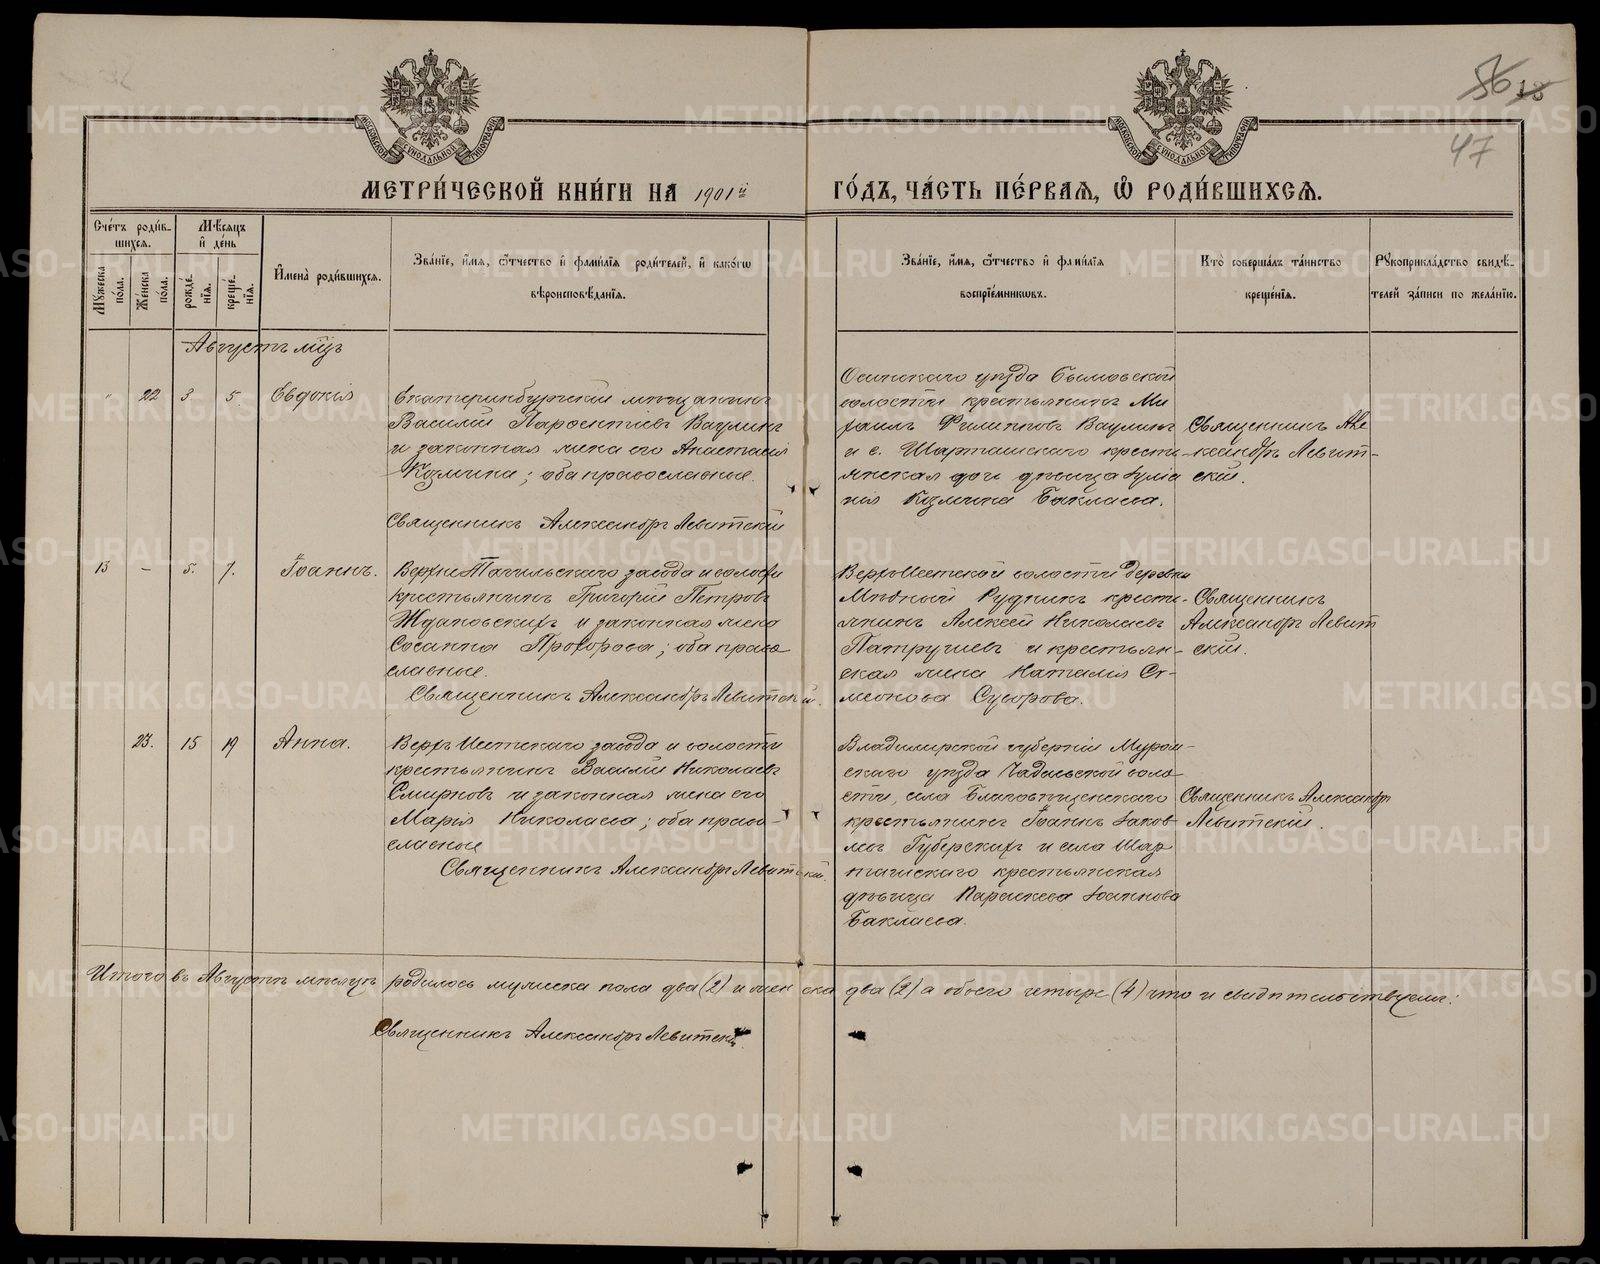 56 13
47
МОСКОВСКОЙ СѴНОДАЛЬНОЙ ТИПОГРАФІИ
МОСКОВСКОЙ СѴНОДАЛЬНОЙ ТИПОГРАФІИ
МЕТРИ́ЧЕСКОЙ КНИ́ГИ НА 1901й ГО́ДЪ, ЧА́СТЬ ПЕ́РВАЯ, Ѡ РОДИ́ВШИХСЯ.
Сче́тъ роди́в-
шихся.
Мѣ́сяцъ
и҆ де́нь
Мꙋ́жеска
по́ла.
Же́нска
по́ла.
рожде́-
нїя.
креще́-
нїя.
И҆мена̀ роди́вшихся.
Зва́нїе, и҆́мя, ѻ҆́тчество и҆ фами́лїя роди́телей, и҆ како́гѡ
вѣроисповѣ́данїя.
Зва́нїе, и҆́мя, ѻ҆́тчество и҆ фами́лїя
воспрїе́мникѡвъ.
Кто̀ соверша́лъ та́инство
креще́нїя.
Рꙋкоприкла́дство свидѣ́-
телей за́писи по жела́нїю.
Августъ мцъ
" 22 3 5. Евдокія
Екатеринбургскій мѣщанинъ
Василій Парѳентіевъ Ваулинъ
и законная жена его Анастасія
Козмина; оба православные.
Священникъ Александръ Левитскій
Осинскаго уѣзда Бымовской
волости крестьянинъ Ми
хаилъ Филипповъ Ваулинъ
и с. Шарташскаго крестъ-
янская дочь дѣвица Іуліа
нія Козмина Баклаева.
Священникъ Але
ксандръ Левит-
скій.
13 - 5. 7. Іоаннъ.
Верхне Тагильскаго завода и волости
крестьянинъ Григорій Петровъ
Ждановскихъ и законная жена
Сосанна Прохорова; оба право
славные.
Священникъ Александръ Левитскій.
Верхъисетской волости деревни
Мѣдный Рудникъ кресть-
янинъ Алексѣй Николаевъ
Патрушевъ и крестьян-
ская жена Наталія Се-
меонова Суворова.
Священникъ
Александръ Левит
скій.
23. 15 19 Анна.
Верхъ Исетскаго завода и волости
крестьянинъ Василій Николаевъ
Смирновъ и законная жена его
Марія Николаева; оба право-
славные
Священникъ Александръ Левитскій.
Владимирской губерніи Муром-
скаго уѣзда воло
сти, села Благовѣщенскаго
крестьянинъ Іоаннъ Іаков-
левъ Губерскихъ и села Шар
ташскаго крестьянская
дѣвица Параскева Іоаннова
Баклаева.
Священникъ Александръ
Левитскій.
Итого въ Августѣ мѣсяцѣ родилось мужеска пола два (2) и женска два (2) а обоего четыре (4) что и свидѣтельствуемъ:
Священникъ Александръ Левитскій.
METRIKI.GASO-URAL.RU